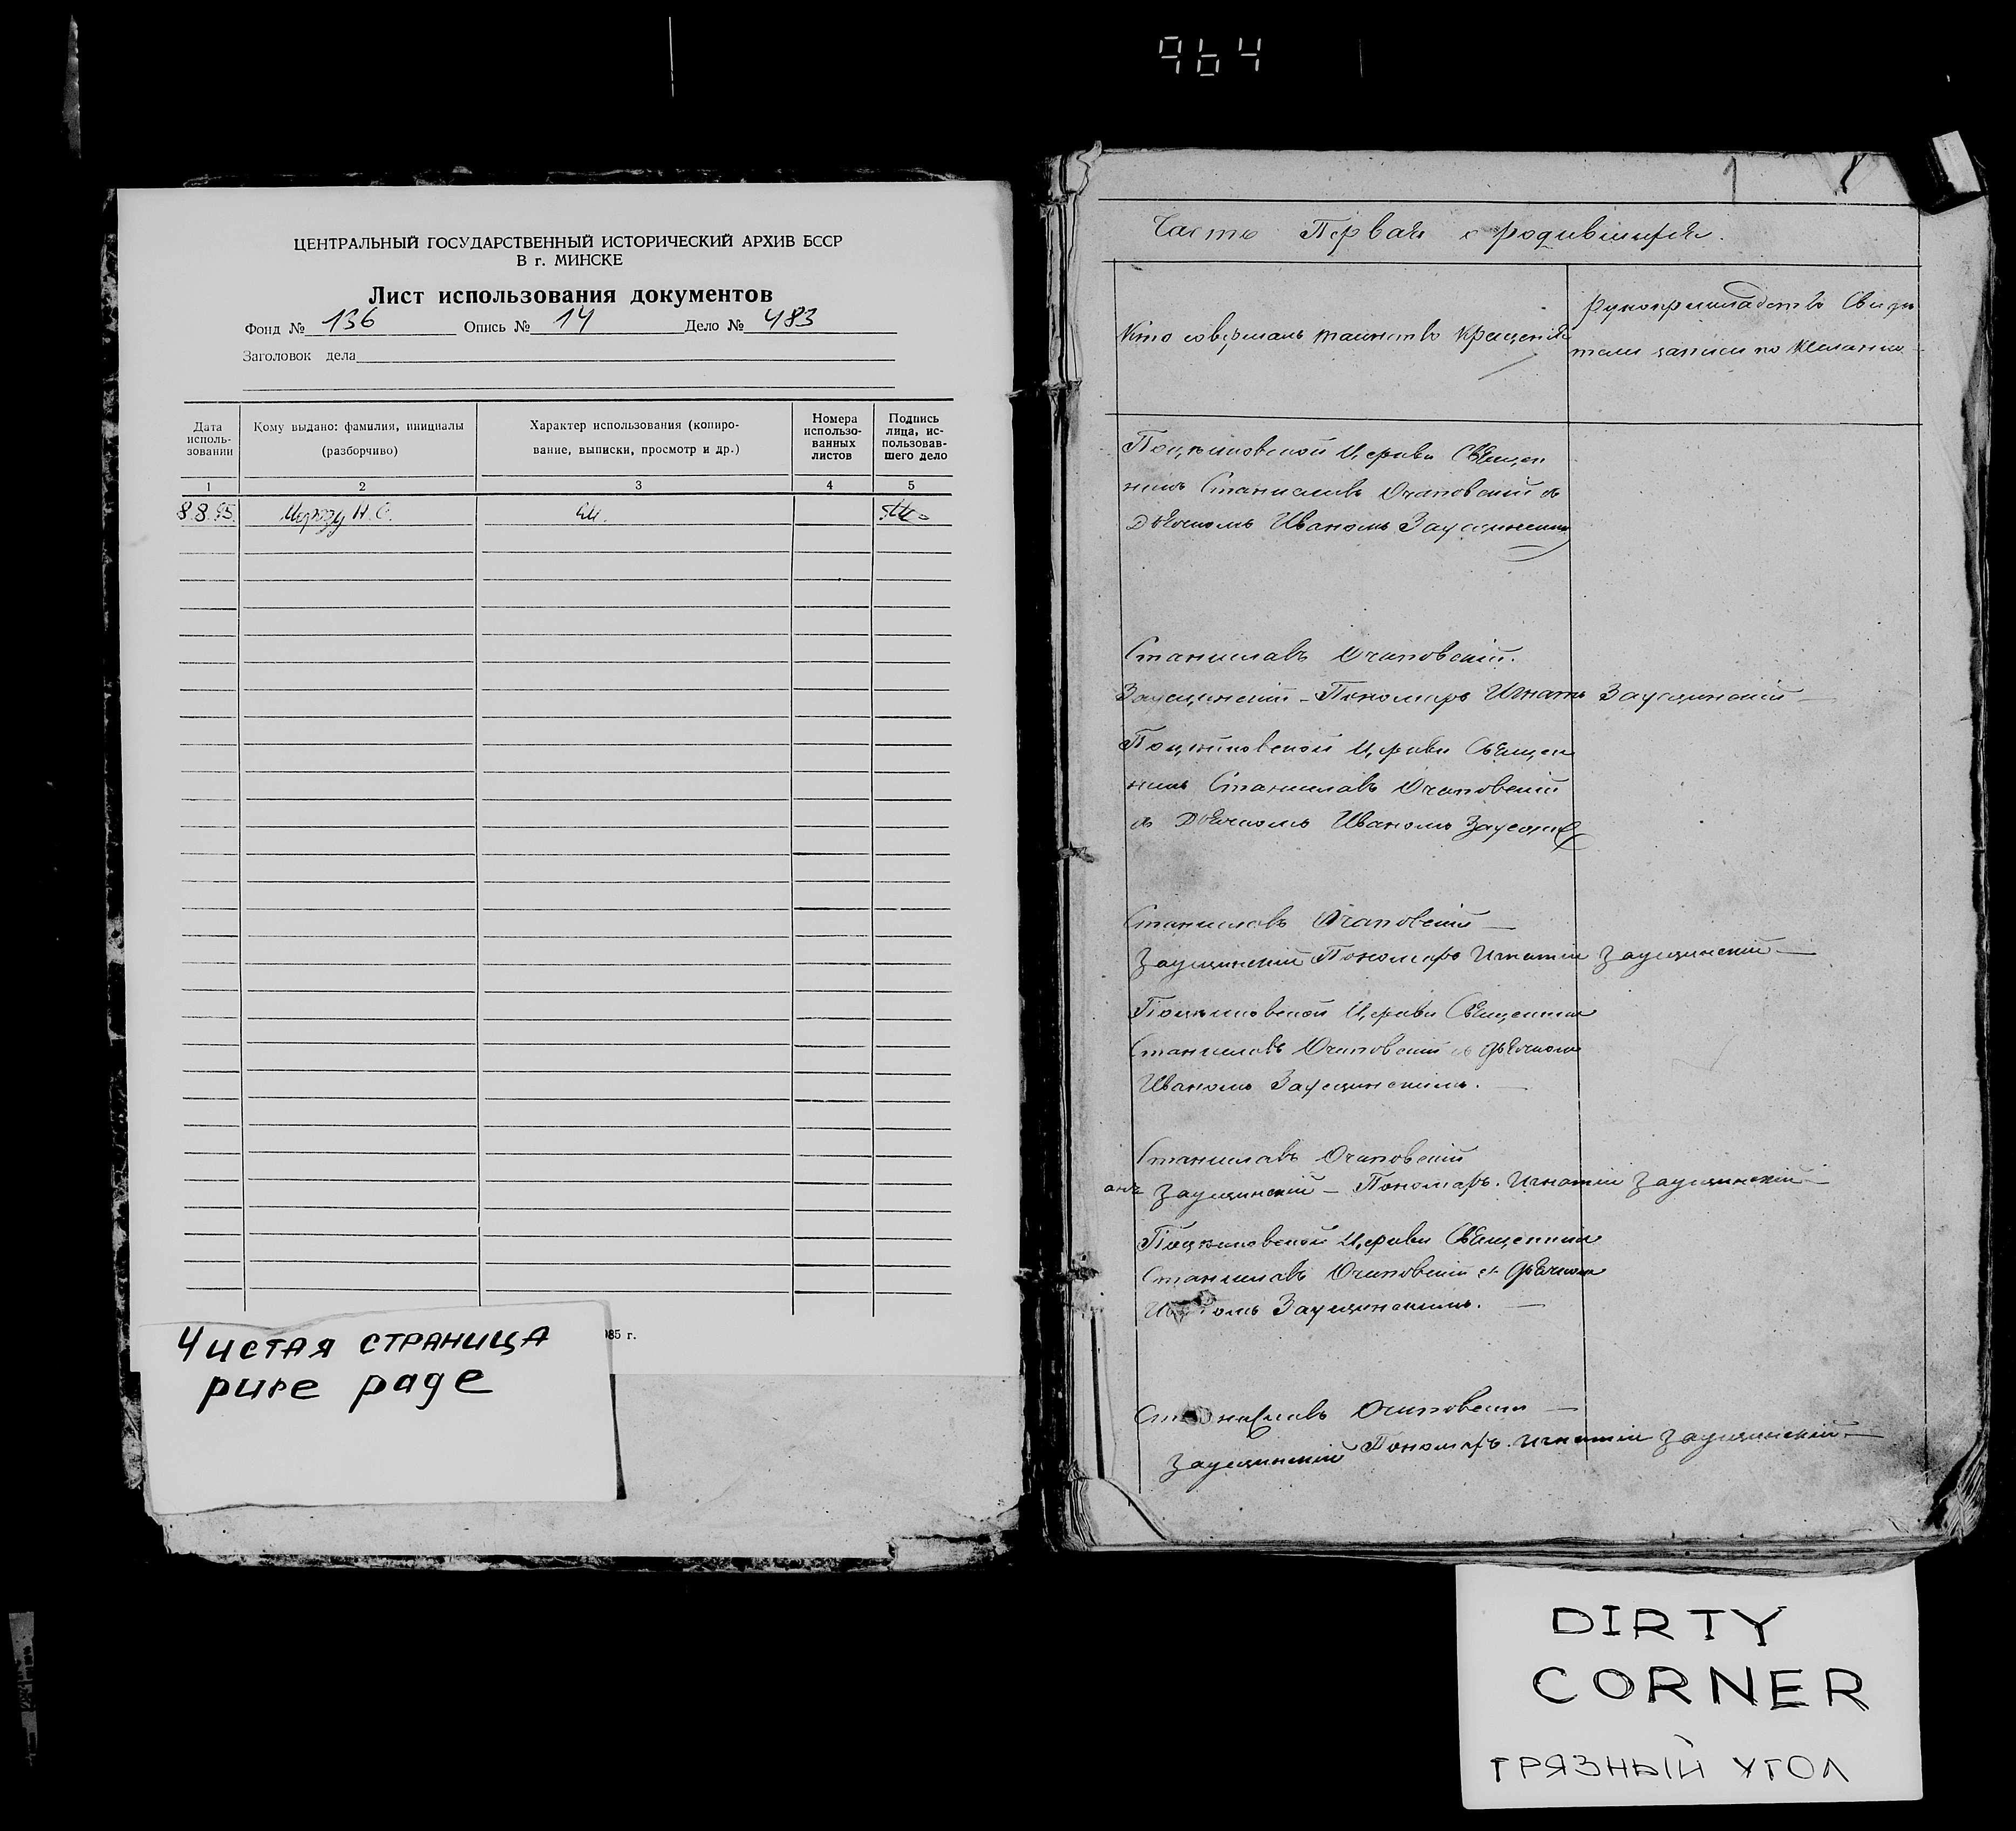 964
ЦЕНТРАЛЬНЫЙ ГОСУДАРСТВЕННЫЙ ИСТОРИЧЕСКИЙ АРХИВ БССР
В г. МИНСКЕ
Лист использования документов
Фонд № 136 Опись № 14 Дело № 483
Заголовок дела
Дата
исполь-
зовании
Кому выдано: фамилия, инициалы
(разборчиво)
Характер использования (копиро-
вание, выписки, просмотр и др.)
Номера
использо-
ванных
листов
Подпись
лица, ис-
пользовав-
шего дело
1 2 3 4 5
8.8.95.
85 г.
Чистая страница
pure page
1
Часть Первая о родившихся.
Кто совершалъ таинство крещенія
Рукоприкладство Свидѣ
телей записи по желанію
Церкви Священ
никъ Станиславъ Очаповскій съ
Дьячкомъ Иваномъ Заусцинскимъ
Станиславъ Очаповскій.
Заусцинскій - Пономарь Игнатій Заусцинскій
Церкви Священ
никъ Станиславъ Очаповскій
съ Дьячкомъ Иваномъ
Станиславъ Очаповскій
Заусцинскій Пономарь Игнатій Заусцинскій
Церкви Священникъ
Станиславъ Очаповскій съ Дьячкомъ
Иваномъ Заусцинскимъ.
Станиславъ Очаповскій
Заусцинскій - Пономарь. Игнатій Заусцинскій
Церкви Священникъ
Станиславъ Очаповскій съ Дьячкомъ
Заусцинскимъ.
Станиславъ Очаповскій
Заусцинскій Пономарь. Игнатій Заусцинскій
DIRTY
CORNER
ГРЯЗНЫЙ УГОЛ